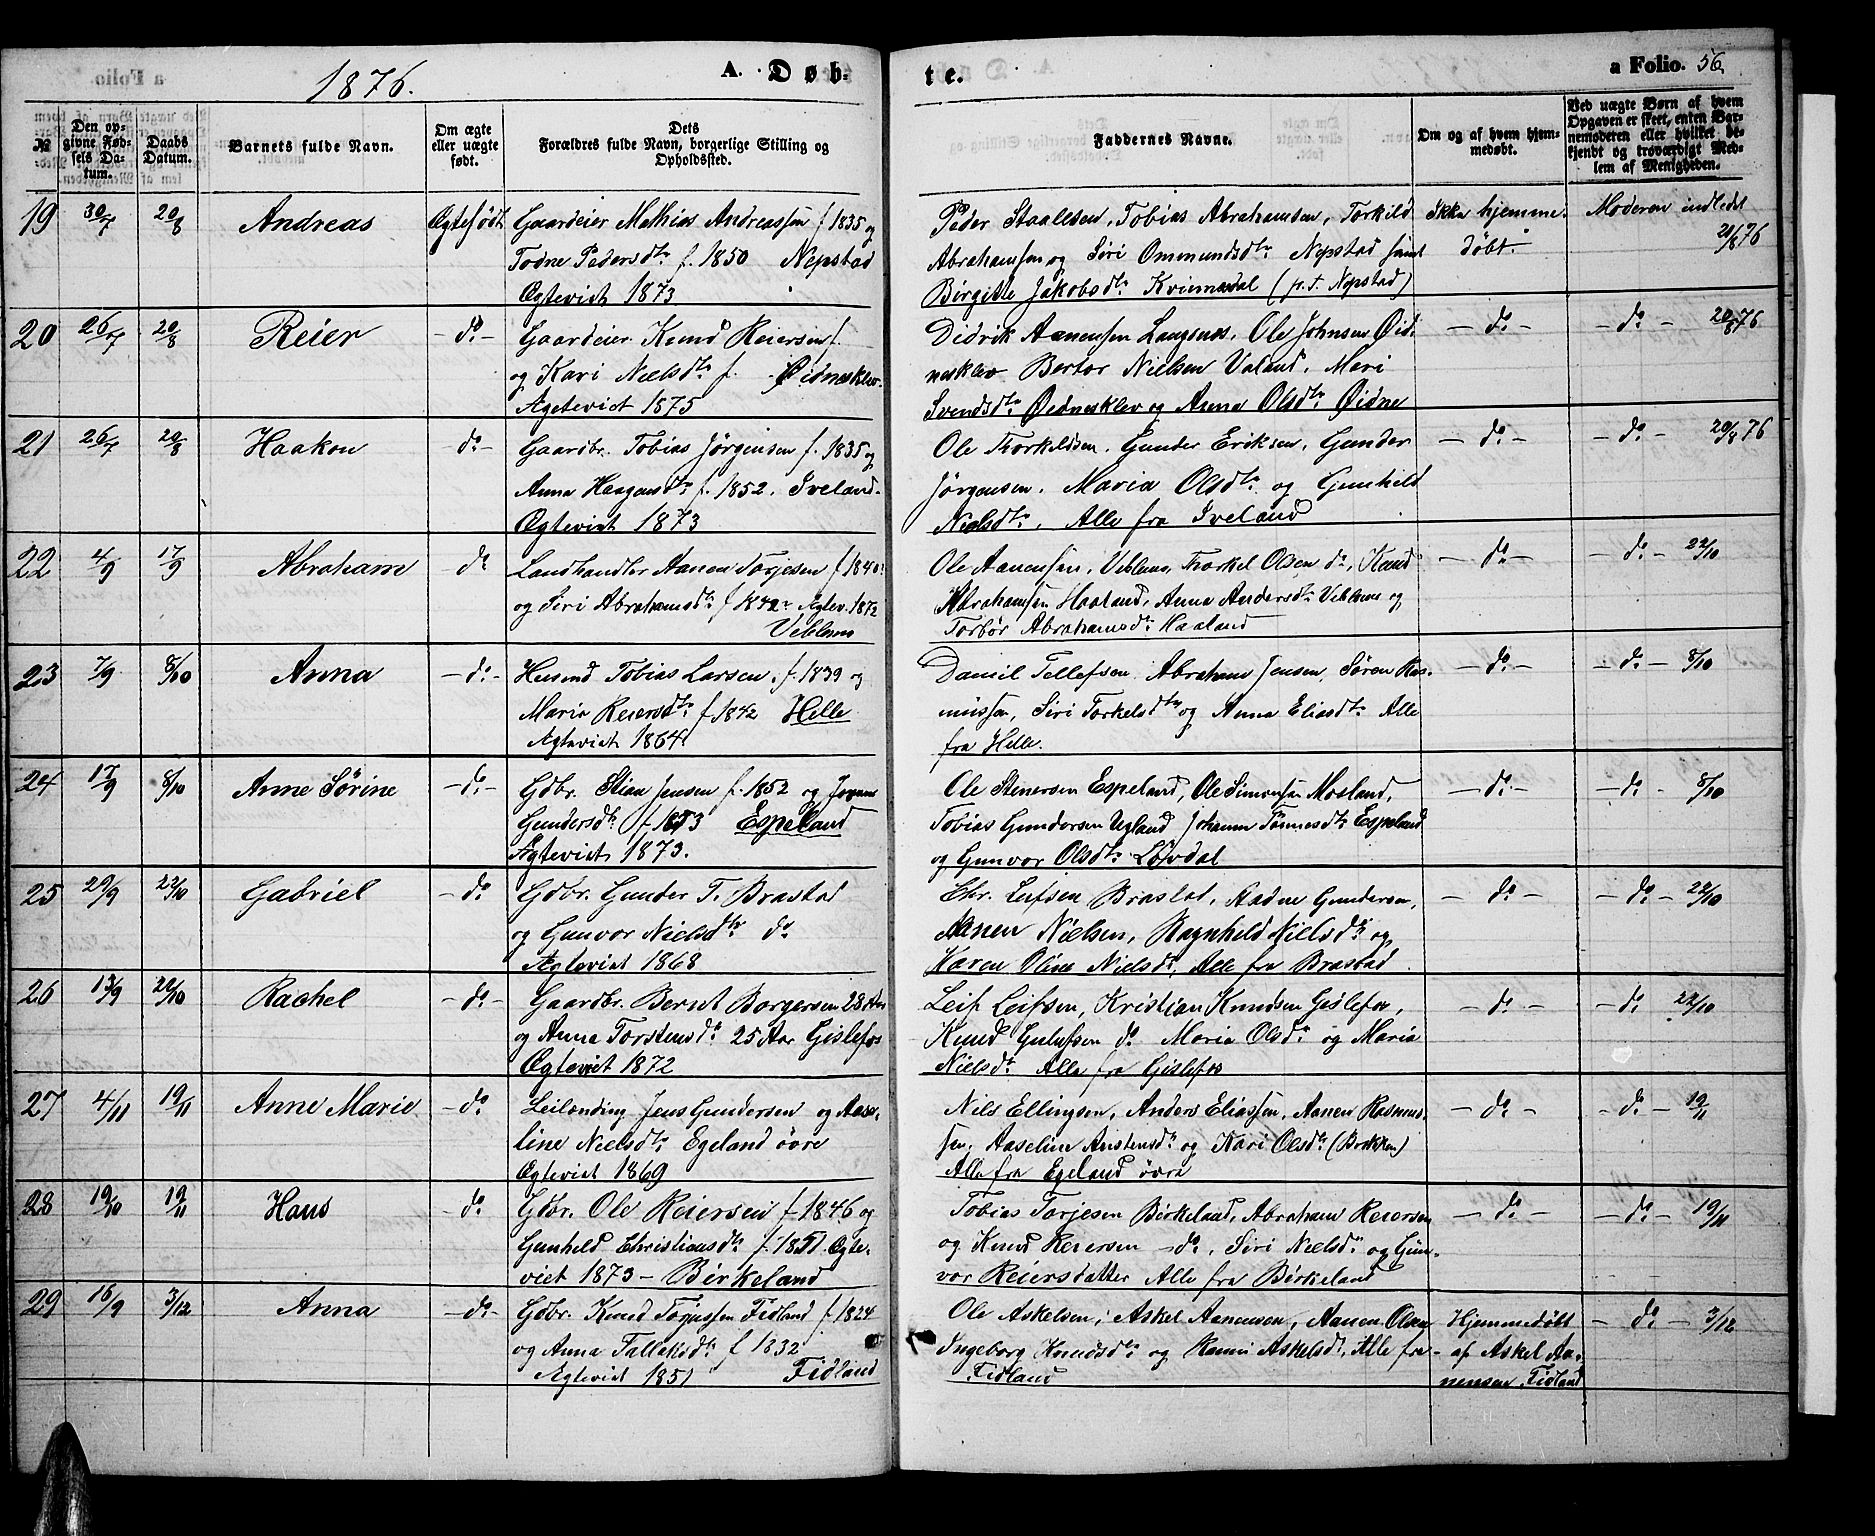 1876.
A. Døb-
te.
a Folio. 56
№
Den op-
givne Fød-
sels Da-
tum.
Daabs
Datum.
Barnets fulde Navn.
Om ægte
eller uægte
født.
Dets
Forældres fulde Navn, borgerlige Stilling og
Opholdssted.
Faddernes Navne.
Om og af hvem hjem-
medøbt.
Ved uægte Børn af hvem
Opgaven er skeet, enten Bar-
nemoderen eller hvilket be-
kjendt og troværdigt Med-
lem af Menigheden.
19 30/7 20/8 Andreas Ægtefødt Gaardeier Mathias Andreassen f. 1835 og
Todne Pedersdtr f. 1850 Nepstad
Ægteviet 1873
Peder Staalesen, Tobias Abrahamsen, Torkild
Abrahamsen og Siri Ommundsdtr Nepstad samt
Birgitte Jakobsdtr Kvinnesdal (p.t. Nepstad)
Ikke hjemme-
døbt.
Moderen indledet
21/8 76
20 26/7 20/8 Reier do Gaardeier Knud Reiersen f.
og Kari Nielsdtr f. Øidnesklev.
Ægteviet 1875
Didrik Aanensen Langsnes, Ole Johnsen Øid-
nesklev Bertor Nielsen Valand, Mari
Svendsdtr Øidnesklev og Anna Olsdtr Øidne
- do - - do - 20/8 76
21 26/7 20/8 Haakon do Gaardbr. Tobias Jörgensen f. 1835 og
Anna Haagensdtr f. 1852. Iveland.
Ægteviet 1873
Ole Torkildsen, Gunder Eriksen, Gunder
Jørgensen, Maria Olsdtr og Gunhild
Nielsdtr. Alle fra Iveland
- do - - do - 20/8 76
22 4/9 17/9 Abraham do Landhandler Aanen Torjesen f 1840
og Siri Abrahamsdtr f 1842 Ægtev. 1872
Veblem
Ole Aanensen, Torkel Olsen do, Knud
Abrahamsen Haaland, Anna Andersdtr og
Torbør Abrahamsdtr Haaland
- do - - do - 22/10
23 7/9 8/10 Anna - do - Husmd Tobias Larsen f. 1839 og
Maria Reiersdtr f 1842 Helle
Ægteviet 1864
Daniel Tellefsen Abraham Jensen, Søren Ras-
mussen, Siri Torkelsdtr og Anna Eliasdtr Alle
fra Helle.
- do - - do - 8/10
24 17/9 8/10 Anne Sørine - do - Gdbr. Stian Jensen f. 1852 og
Gundersdtr f 1853 Espeland
Ægteviet 1873.
Ole Stenersen Espeland, Ole Simonsen Mosland,
Tobias Gundersen Ugland Johanne Tønnesdtr Espeland
og Gunvor Olsdtr Løvdal
- do - - do - 8/10
25 29/9 22/10 Gabriel - do Gdbr. Gunder T. Brastad
og Gunvor Nielsdtr do
Ægteviet 1868
Chr. Leifsen Brastad, Aadne Gundersen,
Aanen Nielsen, Ragnhild Nielsdtr og
Karen Oline Nielsdtr, Alle fra Brastad
- do - - do - 22/10
26 13/9 22/10 Rachel - do - Gaardbr. Bernt Borgersen 28 Aar
og Anna Torstensdtr 25 Aar Gislefos
Ægteviet 1872
Leif Leifsen, Kristian Knudsen Gislefos,
Knud Gulufsen do Maria Olsdtr og Maria
Nielsdtr Alle fra Gislefos
- do - - do 22/10
27 4/11 19/11 Anne Marie - do Leilænding Jens Gundersen og Aase-
line Nielsdtr Egeland övre
Ægteviet 1869
Nils Ellingsen, Anders Eliassen, Aanen Rasmus-
sen, Aaseline Anstensdtr og Kari Olsdtr (Brokken)
Alle fra Egeland övre
- do - - do - 19/11
28 19/10 19/11 Hans - do Gdbr. Ole Reiersen f 1846 og
Gunhild Christiansdtr f. 1851. Ægte-
viet 1873 - Birkeland
Tobias Torjesen Birkeland, Abraham Reiersen
og Knud Reiersen - do, Siri Nielsdtr og Gun-
vor Reiersdatter Alle fra Birkeland
- do - - do - 19/11
29 16/9 3/12 Anna - do - Gdbr. Knud Torgussen Fidland f 1824
og Anna Tallaksdtr f 1832
Ægteviet 1851 Fidland
Ole Askelsen, Askel Aanensen, Aanen Olsen
Ingeborg Knudsdtr og Rannei Askelsdtr, Alle fra
Fidland
Hjemmedøbt
af Askel Aa-
nensen, Fidland
- do - 3/12